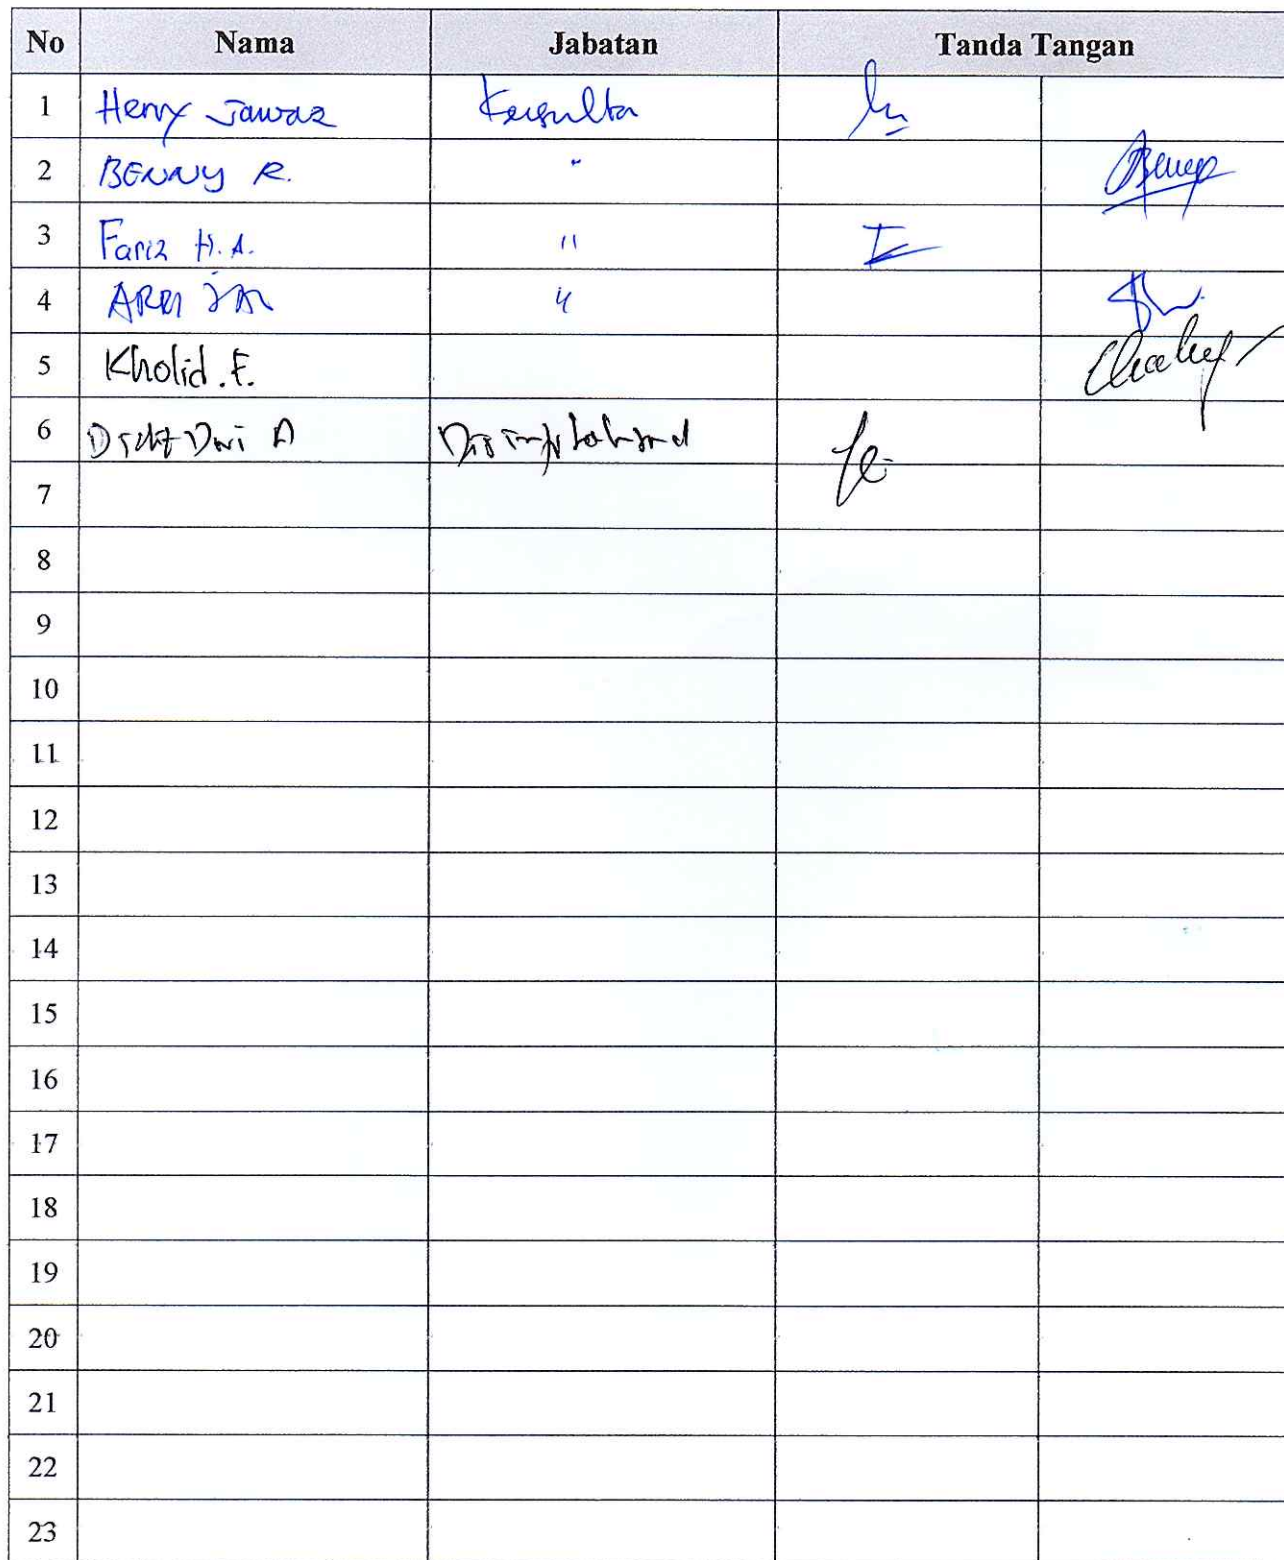 No Nama Jabatan Tanda Tangan
1 Henry Jawaz
2 BENNY R. "
3 Fariz H.A. "
4 "
5 Kholid.F.
6 Dwi A
7
8
9
10
11
12
13
14
15
16
17
18
19
20
21
22
23